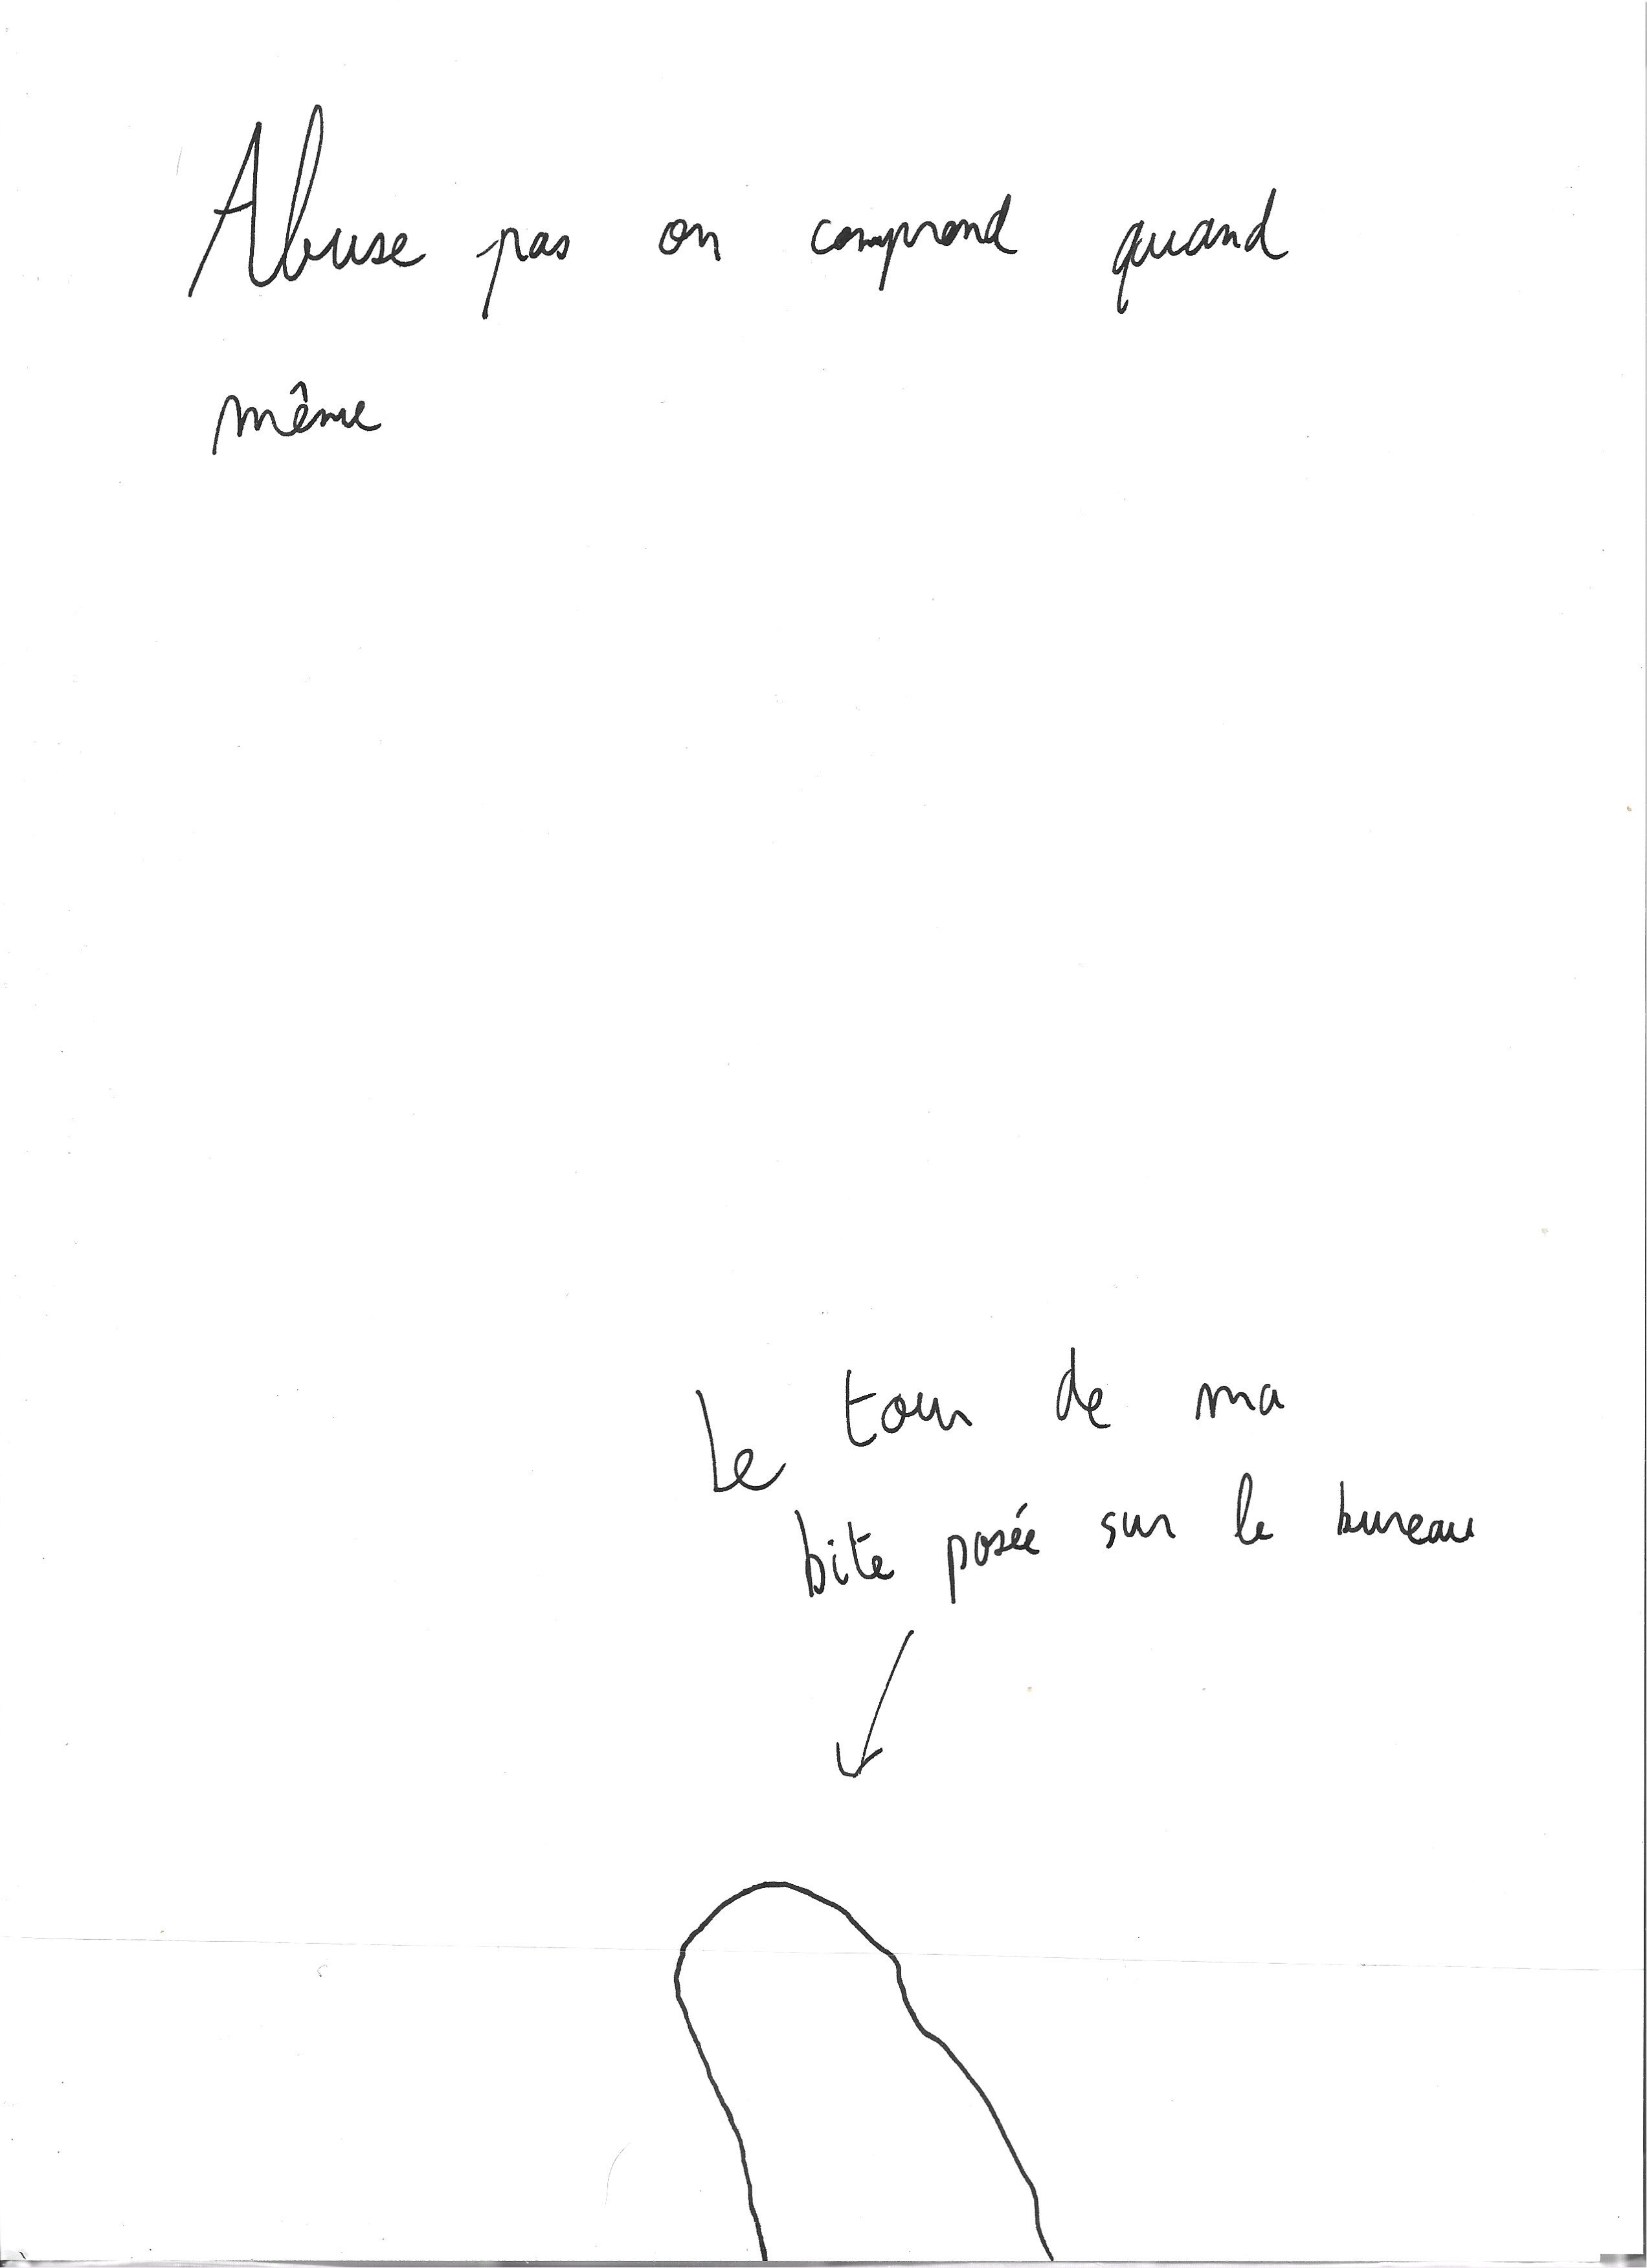 Abuse pas on comprend quand
même
Le tour de ma
bite posée sur le bureau